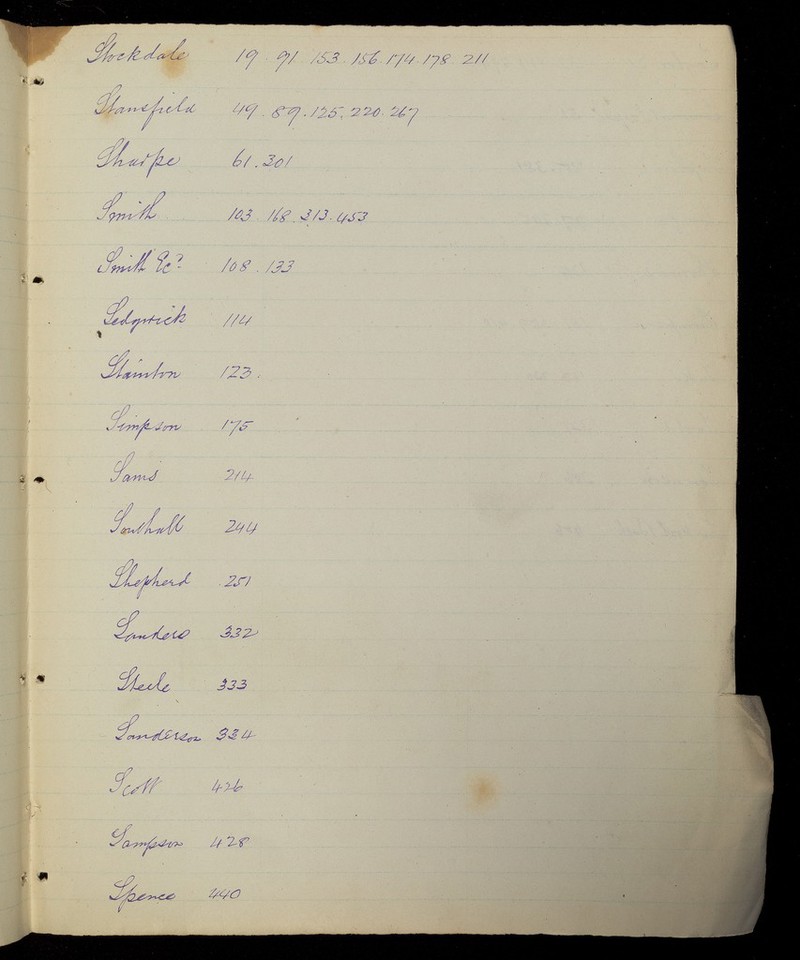 Stockdale 19 . 91 . 153 . 156 . 174 . 178 . 211
Stansfield 49 . 89 . 125 . 220 . 267
Sharpe 61 . 301
Smith 103 . 168 . 313 . 453
Smith &c? 108 . 133
Sedgwick 114
Stainton 123 .
Simpson 175
Sams 214
Southall 244
Shepherd 251
Sanders 332
Steele 333
Sanderson 334
Scott 426
Sampson 428
Spence 440